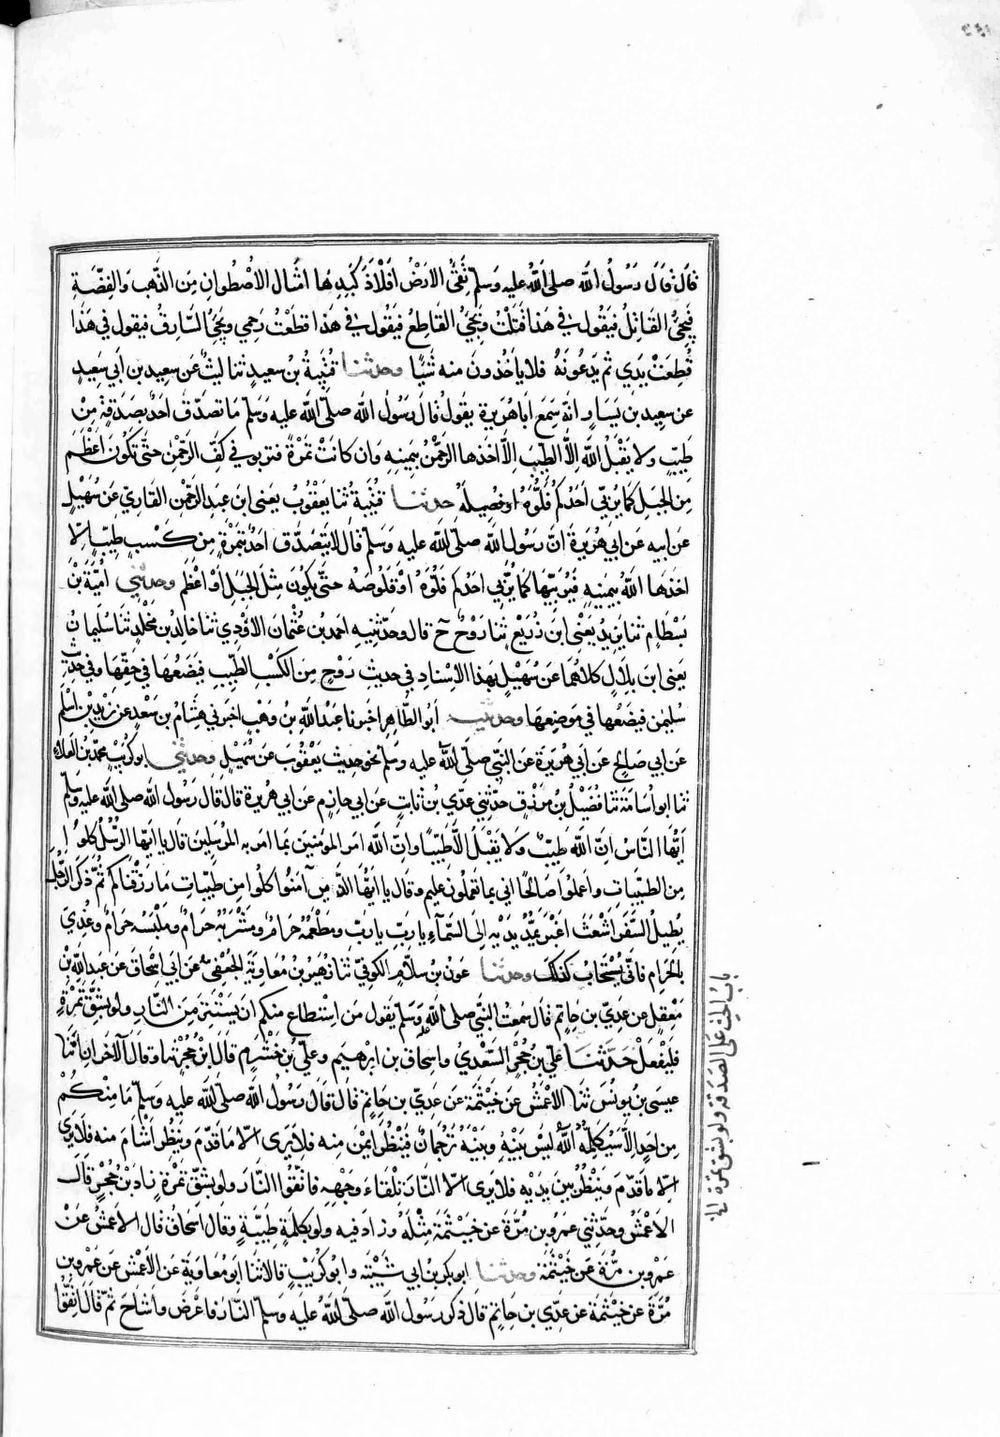 قال قال رسول الله صلى الله عليه وسلم تقئ الارض افلاذ كبدها امثال الاصطوان من الذهب والفضة
فيجئ القاتل فيقول في هذا قتلت ويجئ القاطع فيقول في هذا قطعت رحمي ويجئ السارق فيقول في هذا
قطعت يدي ثم يدعونه فلا ياخذون منه شيئا وحدثنا قتيبة بن سعيد ثنا ليث عن سعيد بن ابي سعيد
عن سعيد بن يسار انه سمع ابا هريرة يقول قال رسول الله صلى الله عليه وسلم ما تصدق احد بصدقة من
طيب ولا يقبل الله الا الطيب الا اخذها الرحمن بيمينه وان كانت تمرة فتربو في كف الرحمن حتى تكون اعظم
من الجبل كما يربي احدكم فلوه او فصيله حدثنا قتيبة ثنا يعقوب يعنى ابن عبد الرحمن القاري عن سهيل
عن ابيه عن ابي هريرة ان رسول الله صلى الله عليه وسلم قال لا يتصدق احد بتمرة من كسب طيب الا
اخذها الله بيمينه فيربيها كما يربي احدكم فلوه او قلوصه حتى يكون مثل الجبل او اعظم وحدثني امية بن
بسطام ثنا يزيد يعنى ابن زريع ثنا روح ح قال وحدثنيه احمد بن عثمان الاودي ثنا خالد بن مخلد ثنا سليمان
يعنى ابن بلال كلاهما عن سهيل بهذا الاسناد في حديث روح من الكسب الطيب فيضعها في حقها وفي حديث
سليمن فيضعها في موضعها وحدثنيه ابو الطاهر اخبرنا عبد الله بن وهب اخبرني هشام بن سعد عن زيد بن اسلم
عن ابي صالح عن ابي هريرة عن النبي صلى الله عليه وسلم نحو حديث يعقوب عن سهيل وحدثني ابو كريب محمد بن العلاء
ثنا ابو اسامة ثنا فضيل بن مرزوق حدثني عدي بن ثابت عن ابي حازم عن ابي هريرة قال قال رسول الله صلى الله عليه وسلم
ايها الناس ان الله طيب ولا يقبل الا طيبا وان الله امر المؤمنين بما امر به المرسلين قال يا ايها الرسل كلوا
من الطيبات واعملوا صالحا اني بما تعملون عليم وقال يا ايها الذين آمنوا كلوا من طيبات ما رزقناكم ثم ذكر الرجل
يطيل السفر اشعث اغبر يمد يديه الى السماء يا رب يا رب ومطعمه حرام ومشربه حرام وملبسه حرام وغذي
بالحرام فانى يستجاب لذلك وحدثنا عون بن سلام الكوفي ثنا زهير بن معاوية الجعفي عن ابي اسحاق عن عبد الله بن
معقل عن عدي بن حاتم قال سمعت النبي صلى الله عليه وسلم يقول من استطاع منكم ان يستتر من النار ولو بشق تمرة
فليفعل حدثنا علي بن حجر السعدي واسحاق بن ابرهيم وعلي بن خشرم قال ابن حجر ثنا وقال الآخران انا
عيسى بن يونس ثنا الاعمش عن خيثمة عن عدي بن حاتم قال قال رسول الله صلى الله عليه وسلم ما منكم
من احد الا سيكلمه الله ليس بينه وبينه ترجمان فينظر ايمن منه فلا يرى الا ما قدم وينظر اشام منه فلا يرى
الا ما قدم وينظر بين يديه فلا يرى الا النار تلقاء وجهه فاتقوا النار ولو بشق تمرة زاد بن حجر قال
الاعمش وحدثني عمرو بن مرة عن خيثمة مثله وزاد فيه ولو بكلمة طيبة وقال اسحاق قال الاعمش عن
عمرو بن مرة عن خيثمة وحدثنا ابو بكر بن ابي شيبة وابو كريب قالا ثنا ابو معاوية عن الاعمش عن عمرو بن
مرة عن خيثمة عن عدي بن حاتم قال ذكر رسول الله صلى الله عليه وسلم النار فاعرض واشاح ثم قال اتقوا
باب الحث على الصدقة ولو بشق تمرة